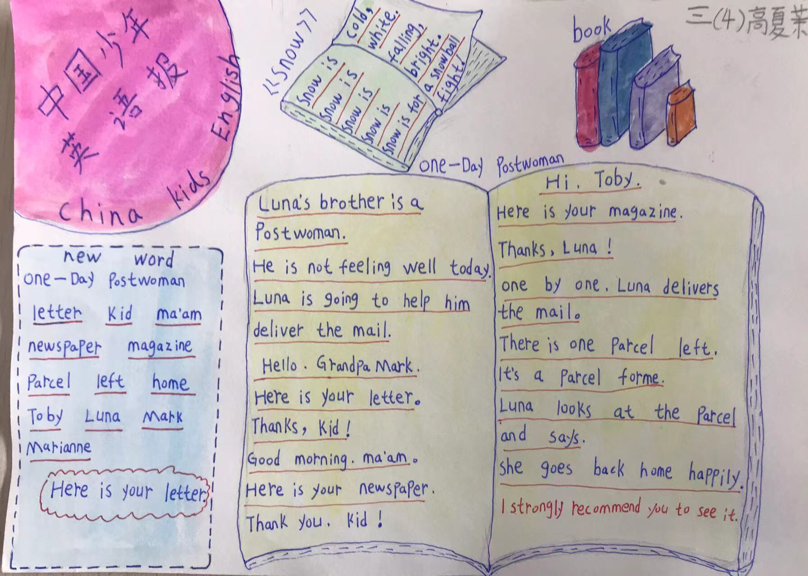 中国少年
英语报
China kids English
《Snow》
Snow is cold.
Snow is white.
Snow is falling,
Snow is bright.
Snow is for a snowball
fight!
book
三(4)高夏茉
new word
one-Day Postwoman
letter Kid ma'am
newspaper magazine
Parcel left home
Toby Luna Mark
Marianne
Here is your letter
one-Day Postwoman
Luna's brother is a
Postwoman.
He is not feeling well today.
Luna is going to help him
deliver the mail.
Hello. Grandpa Mark.
Here is your letter。
Thanks, Kid!
Good morning. ma'am。
Here is your newspaper.
Thank you. Kid!
Hi. Toby.
Here is your magazine.
Thanks, Luna!
one by one. Luna delivers
the mail。
There is one Parcel left.
It's a Parcel forme.
Luna looks at the Parcel
and says.
she goes back home happily.
I strongly recommend you to see it.